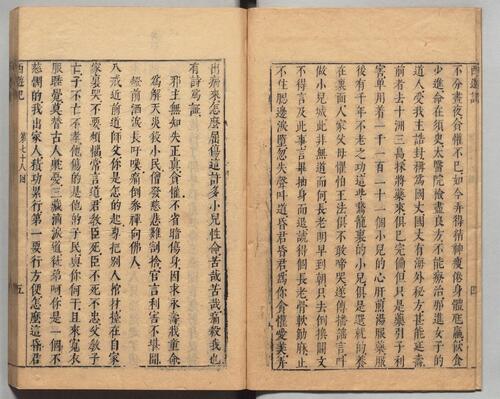 西遊記
不分晝夜貪懽不已如今弄得精神瘦倦身體尫羸飲食
少進命在須臾太醫院檢盡良方不能療治那進女子的
道人受我主誥封稱爲國丈國丈有海外秘方甚能延壽
前者去十洲三島採將藥來俱已完備但只是藥引子利
害單用着一千一百一十一個小兒的心肝煎湯服藥服
後有千年不老之功這些鵝籠裏的小兒俱是選就的養
在裏面人家父母懼怕王法俱不敢啼哭遂傳播謠言叫
做小兒城此非無道而何長老明早到朝只去倒換關文
不得言及此事言畢抽身而退諕得個長老骨軟觔麻止
不住腮邊淚墮忽失聲叫道昏君昏君爲你貪懽愛美弄
出病來怎麼屈傷這許多小兒性命苦哉苦哉痛殺我也
有詩爲証
邪主無知失正真貪懽不省暗傷身因求永壽戕童命
爲解天災殺小民僧發慈悲難割捨官言利害不堪聞
燈前洒淚長吁嘆痛倒參禪向佛人
八戒近前道師父你是怎的起專把別人棺材擡在自家
家裏哭不要煩惱常言道君教臣死臣不死不忠父教子
亡子不亡不孝他傷的是他的子民與你何干且來寬衣
服睡覺莫替古人耽憂三藏滴淚道徒弟呵你是一個不
慈憫的我出家人積功累行第一要行方便怎麼這昏君
西遊記 第七十八回 五